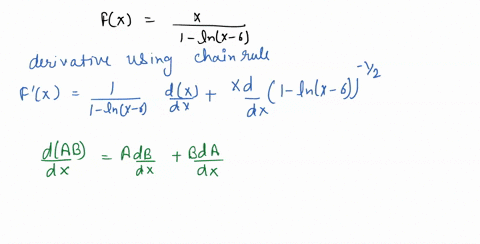 F(x) = x / 1 - ln(x-6)
derivative using chain rule
F'(x) = 1 / 1 - ln(x-6) d(x)/dx + x d/dx (1 - ln(x-6))^-1/2
d(AB)/dx = A dB/dx + B dA/dx